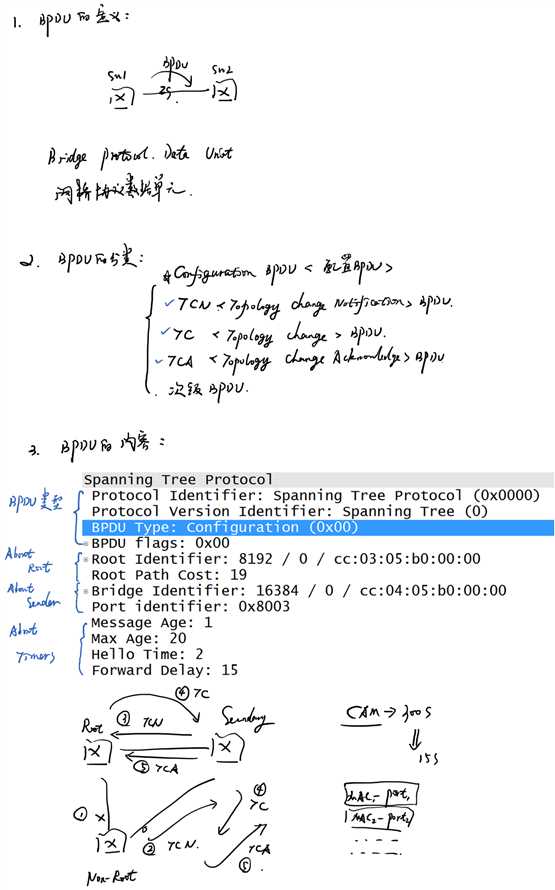 1. BPDU的定义:
SW1
BPDU
SW2
2s.
Bridge Protocol Data Unit
网桥协议数据单元.
2. BPDU的分类:
☆Configuration BPDU <配置BPDU>
✓TCN <Topology change Notification> BPDU.
✓TC <Topology change> BPDU.
✓TCA <Topology change Acknowledge> BPDU
次级BPDU.
3. BPDU的内容:
Spanning Tree Protocol
BPDU类型
Protocol Identifier: Spanning Tree Protocol (0x0000)
Protocol Version Identifier: Spanning Tree (0)
BPDU Type: Configuration (0x00)
BPDU flags: 0x00
About Root
Root Identifier: 8192 / 0 / cc:03:05:b0:00:00
Root Path Cost: 19
About Sender
Bridge Identifier: 16384 / 0 / cc:04:05:b0:00:00
Port identifier: 0x8003
About Timers
Message Age: 1
Max Age: 20
Hello Time: 2
Forward Delay: 15
④ TC
Root
③ TCN
Secondary
⑤ TCA
CAM → 300s
15s
① X
② TCN.
④ TC
TCA
⑤.
Non-Root
MAC1-port1
MAC2-port2